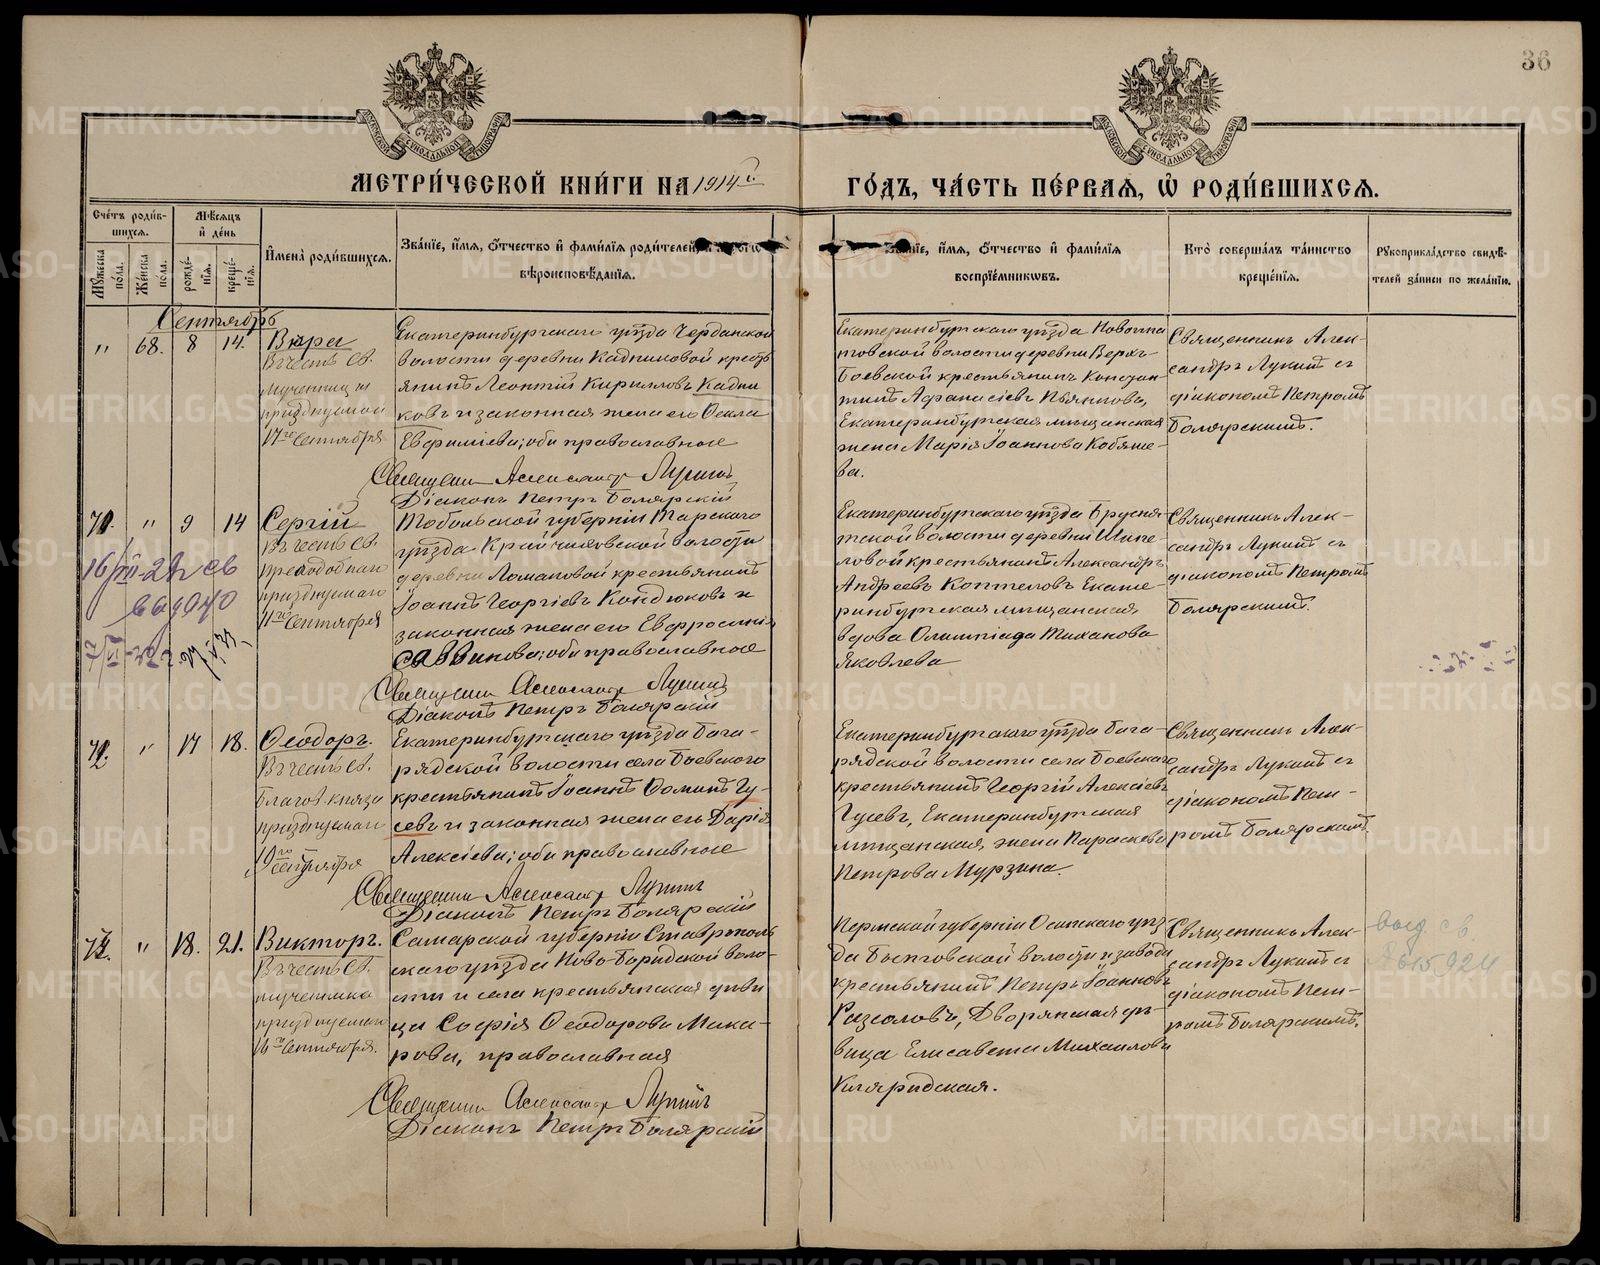 36
МЕТРИ́ЧЕСКОЙ КНИ́ГИ НА 1914 г.
ГО́ДЪ, ЧА́СТЬ ПЕ́РВАЯ, Ѡ҆ РОДИ́ВШИХСЯ.
Сче́тъ роди́в-
шихся.
Мѣ́сяцъ
и҆ де́нь
Му́жеска
по́ла.
Же́нска
по́ла.
рожде́-
нїя.
креще́-
нїя.
И҆мена̀ роди́вшихся.
Зва́нїе, и҆́мя, ѻ҆́тчество и҆ фами́лїя роди́телей,
вѣроисповѣ́данїя.
Зва́нїе, и҆́мя, ѻ҆́тчество и҆ фами́лїя
воспрїе́мниковъ.
Кто̀ соверша́лъ та́инство
креще́нїя.
Рꙋкоприкла́дство свидѣ́-
телей за́писи по жела́нїю.
Сентябрь
" 68. 8 14. Вѣра
Въ честь Св.
мученицы
празднуемой
17го Сентября
Екатеринбургскаго уѣзда Черданской
волости деревни Кадниковой кресть
янинъ Леонтій Кирилловъ Кадни
ковъ и законная жена его Ѳекла
Евфиміева; оба православные
Священник Александр Лукин
Діаконъ Петръ Боярскій
Екатеринбургскаго уѣзда Новоипа
товской волости деревни Верхъ-
Боевской крестьянинъ Констан-
тинъ Афанасіевъ Пьянковъ,
Екатеринбургская мѣщанская
жена Марія Іоаннова Кобяше-
ва.
Священникъ Алек-
сандръ Лукинъ съ
діакономъ Петромъ
Боярскимъ.
" 9 14 Сергій
Въ честь Св.
преподобнаго
празднуемаго
Сентября
16/III-22 св
выдано
Тобольской губерніи Тарскаго
уѣзда волости
деревни Ломановой крестьянинъ
Іоаннъ Георгіевъ Кондюковъ и
законная жена его Евфросинія
Саввинова; оба православные
Священник Александр Лукин
Діаконъ Петръ Боярскій
Екатеринбургскаго уѣзда Брусня-
тской волости деревни Шипе-
ловой крестьянинъ Александръ
Андреевъ Коптеловъ Екате-
ринбургская мѣщанская
вдова Олимпіада Тиханова
Яковлева
Священникъ Алек-
сандръ Лукинъ съ
діакономъ Петромъ
Боярскимъ.
" 17 18. Ѳеодоръ.
Въ честь Св.
Благов. князя
празднуемаго
19го сентября
Екатеринбургскаго уѣзда Бага-
рядской волости села Боевскаго
крестьянинъ Іоаннъ Ѳоминъ Гу-
севъ и законная жена его Дарія
Алексіева; оба православные
Священник Александр Лукин
Діаконъ Петръ Боярскій
Екатеринбургскаго уѣзда Бага-
рядской волости села Боевскаго
крестьянинъ Георгій Алексіевъ
Гусевъ, Екатеринбургская
мѣщанская жена Параскева
Петрова Мурзина.
Священникъ Алек-
сандръ Лукинъ съ
діакономъ Пет-
ромъ Боярскимъ
" 18. 21. Викторъ.
Въ честь Св.
мученика
празднуемаго
16го Сентября.
Самарской губерніи Ставрополь
скаго уѣзда Ново- воло-
сти и села крестьянская дѣви
ца Софія Ѳеодорова Мака-
рова, православная
Священник Александр Лукин
Діаконъ Петръ Боярскій
Пермской губерніи Осинскаго уѣз
да волости и завода
крестьянинъ Петръ Іоанновъ
Разсоловъ, Дворянская дѣ-
вица Елисавета Михаилова
Священникъ Алек-
сандръ Лукинъ съ
діакономъ Пет-
ромъ Боярскимъ.
выд св.
615924
METRIKI.GASO-URAL.RU